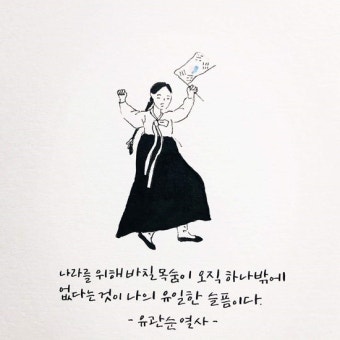 나라를 위해 바친 목숨이 오직 하나밖에
없다는 것이 나의 유일한 슬픔이다.
- 유관순 열사 -